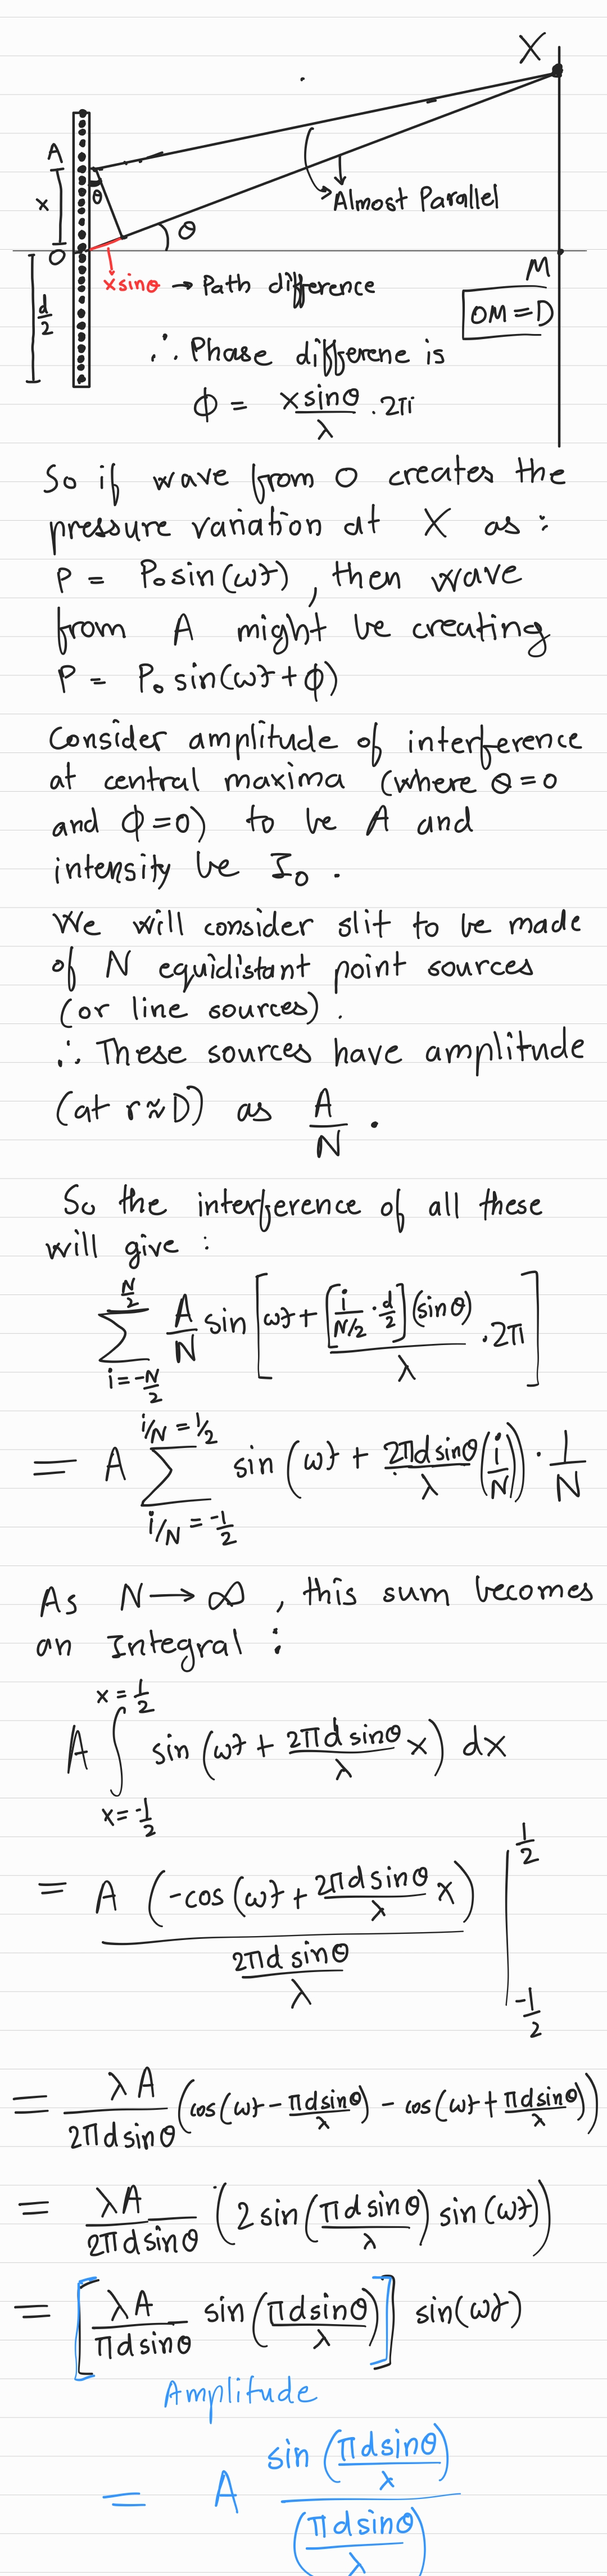 X
A
θ
x
Almost Parallel
θ
O
M
x sinθ → Path difference
OM = D
d/2
∴ Phase differene is
ϕ = x sinθ/λ · 2π
So if wave from O creates the
pressure variation at X as :
P = P₀ sin(ωt) , then wave
from A might be creating
P = P₀ sin(ωt + ϕ)
Consider amplitude of interference
at central maxima (where θ = 0
and ϕ = 0) to be A and
intensity be I₀ .
We will consider slit to be made
of N equidistant point sources
(or line sources) .
∴ These sources have amplitude
(at r ≈ D) as A/N .
So the interference of all these
will give :
∑_{i = -N/2}^{N/2} A/N sin [ωt + [i/(N/2) · d/2](sinθ)/λ · 2π]
= A ∑_{i/N = -1/2}^{i/N = 1/2} sin (ωt + 2πd sinθ/λ (i/N)) · 1/N
As N → ∞ , this sum becomes
an Integral :
A ∫_{x = -1/2}^{x = 1/2} sin (ωt + 2πd sinθ/λ x) dx
= A (-cos (ωt + 2πd sinθ/λ x)) / (2πd sinθ/λ) |_{-1/2}^{1/2}
= λA/(2πd sinθ) (cos(ωt - πd sinθ/λ) - cos(ωt + πd sinθ/λ))
= λA/(2πd sinθ) (2 sin(πd sinθ/λ) sin(ωt))
= [λA/(πd sinθ) sin(πd sinθ/λ)] sin(ωt)
Amplitude
= A sin(πd sinθ/λ) / (πd sinθ/λ)